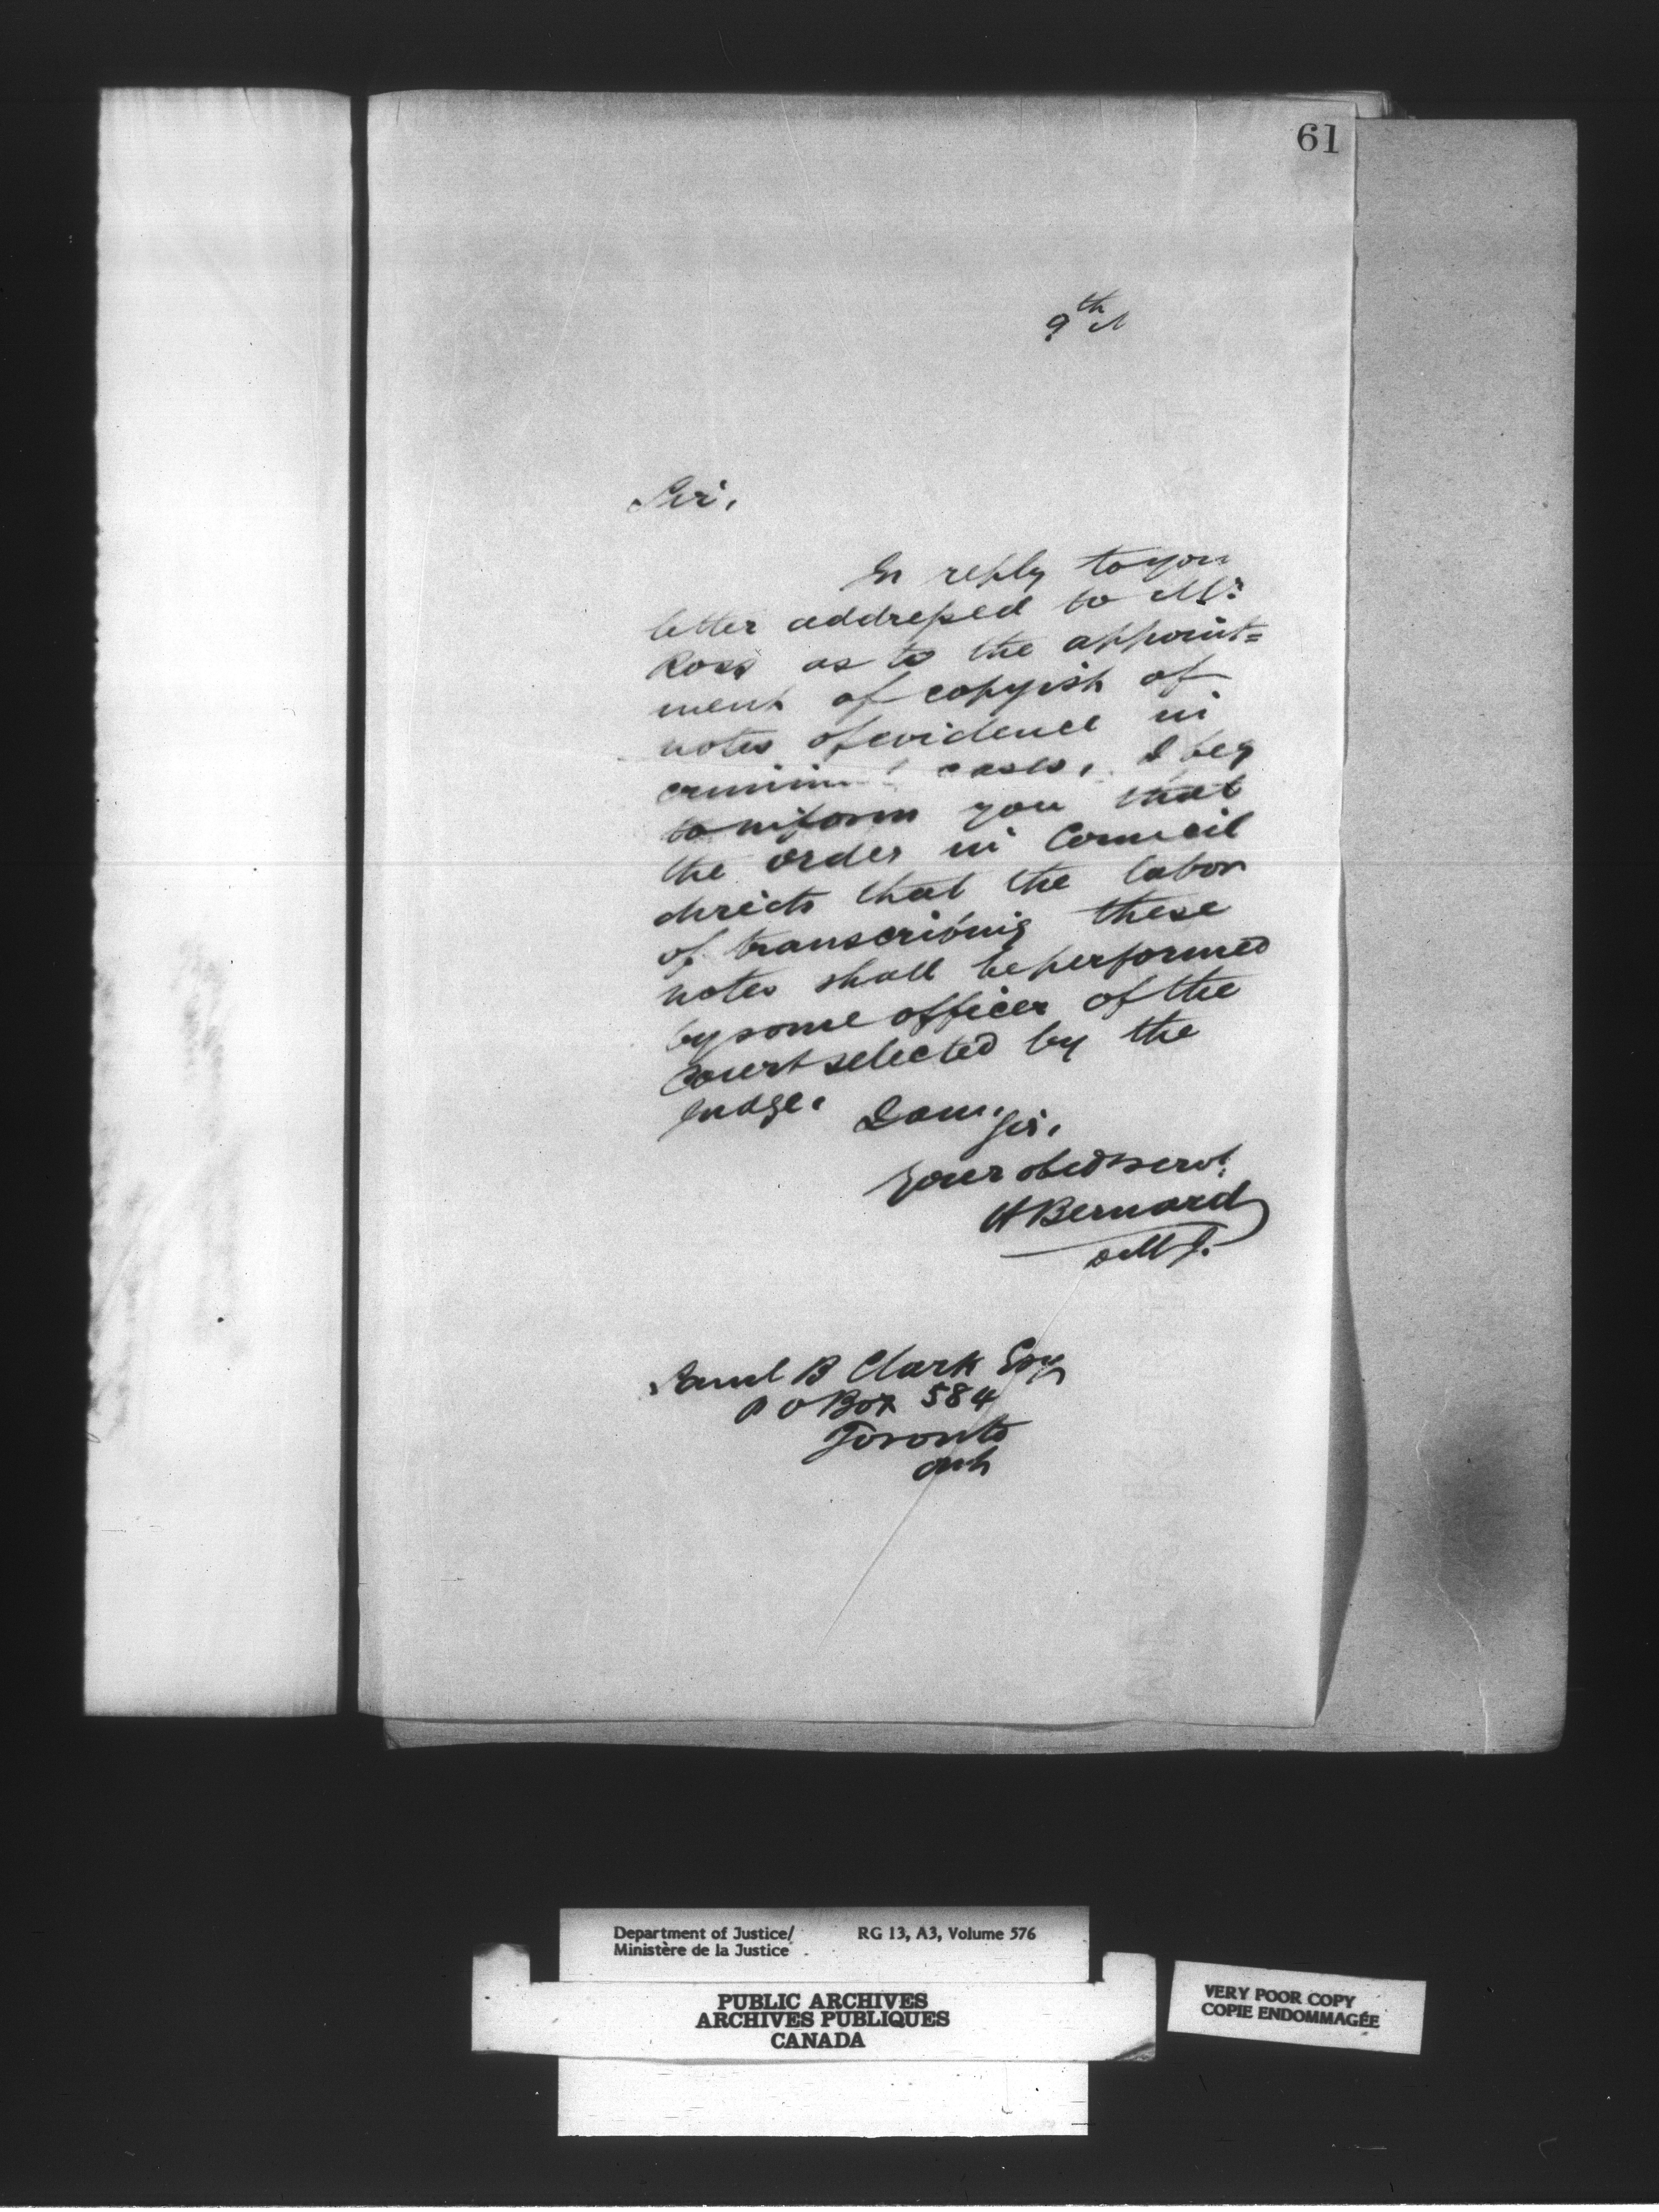 61
9th M
Sir,
In reply to your
letter addressed to Mr.
Ross as to the appoint=
ment of copyist of
notes of evidence in
criminal cases, I beg
to inform you that
the order in Council
directs that the labor
of transcribing these
notes shall be performed
by some officer of the
Court selected by the
Judge.
I am,
Sir,
Your obedt servt.
H Bernard
D M J.
Saml B Clark Esq
P O Box 584
Toronto
Ont
Department of Justice/ RG 13, A3, Volume 576
Ministère de la Justice
PUBLIC ARCHIVES
ARCHIVES PUBLIQUES
CANADA
VERY POOR COPY
COPIE ENDOMMAGÉE